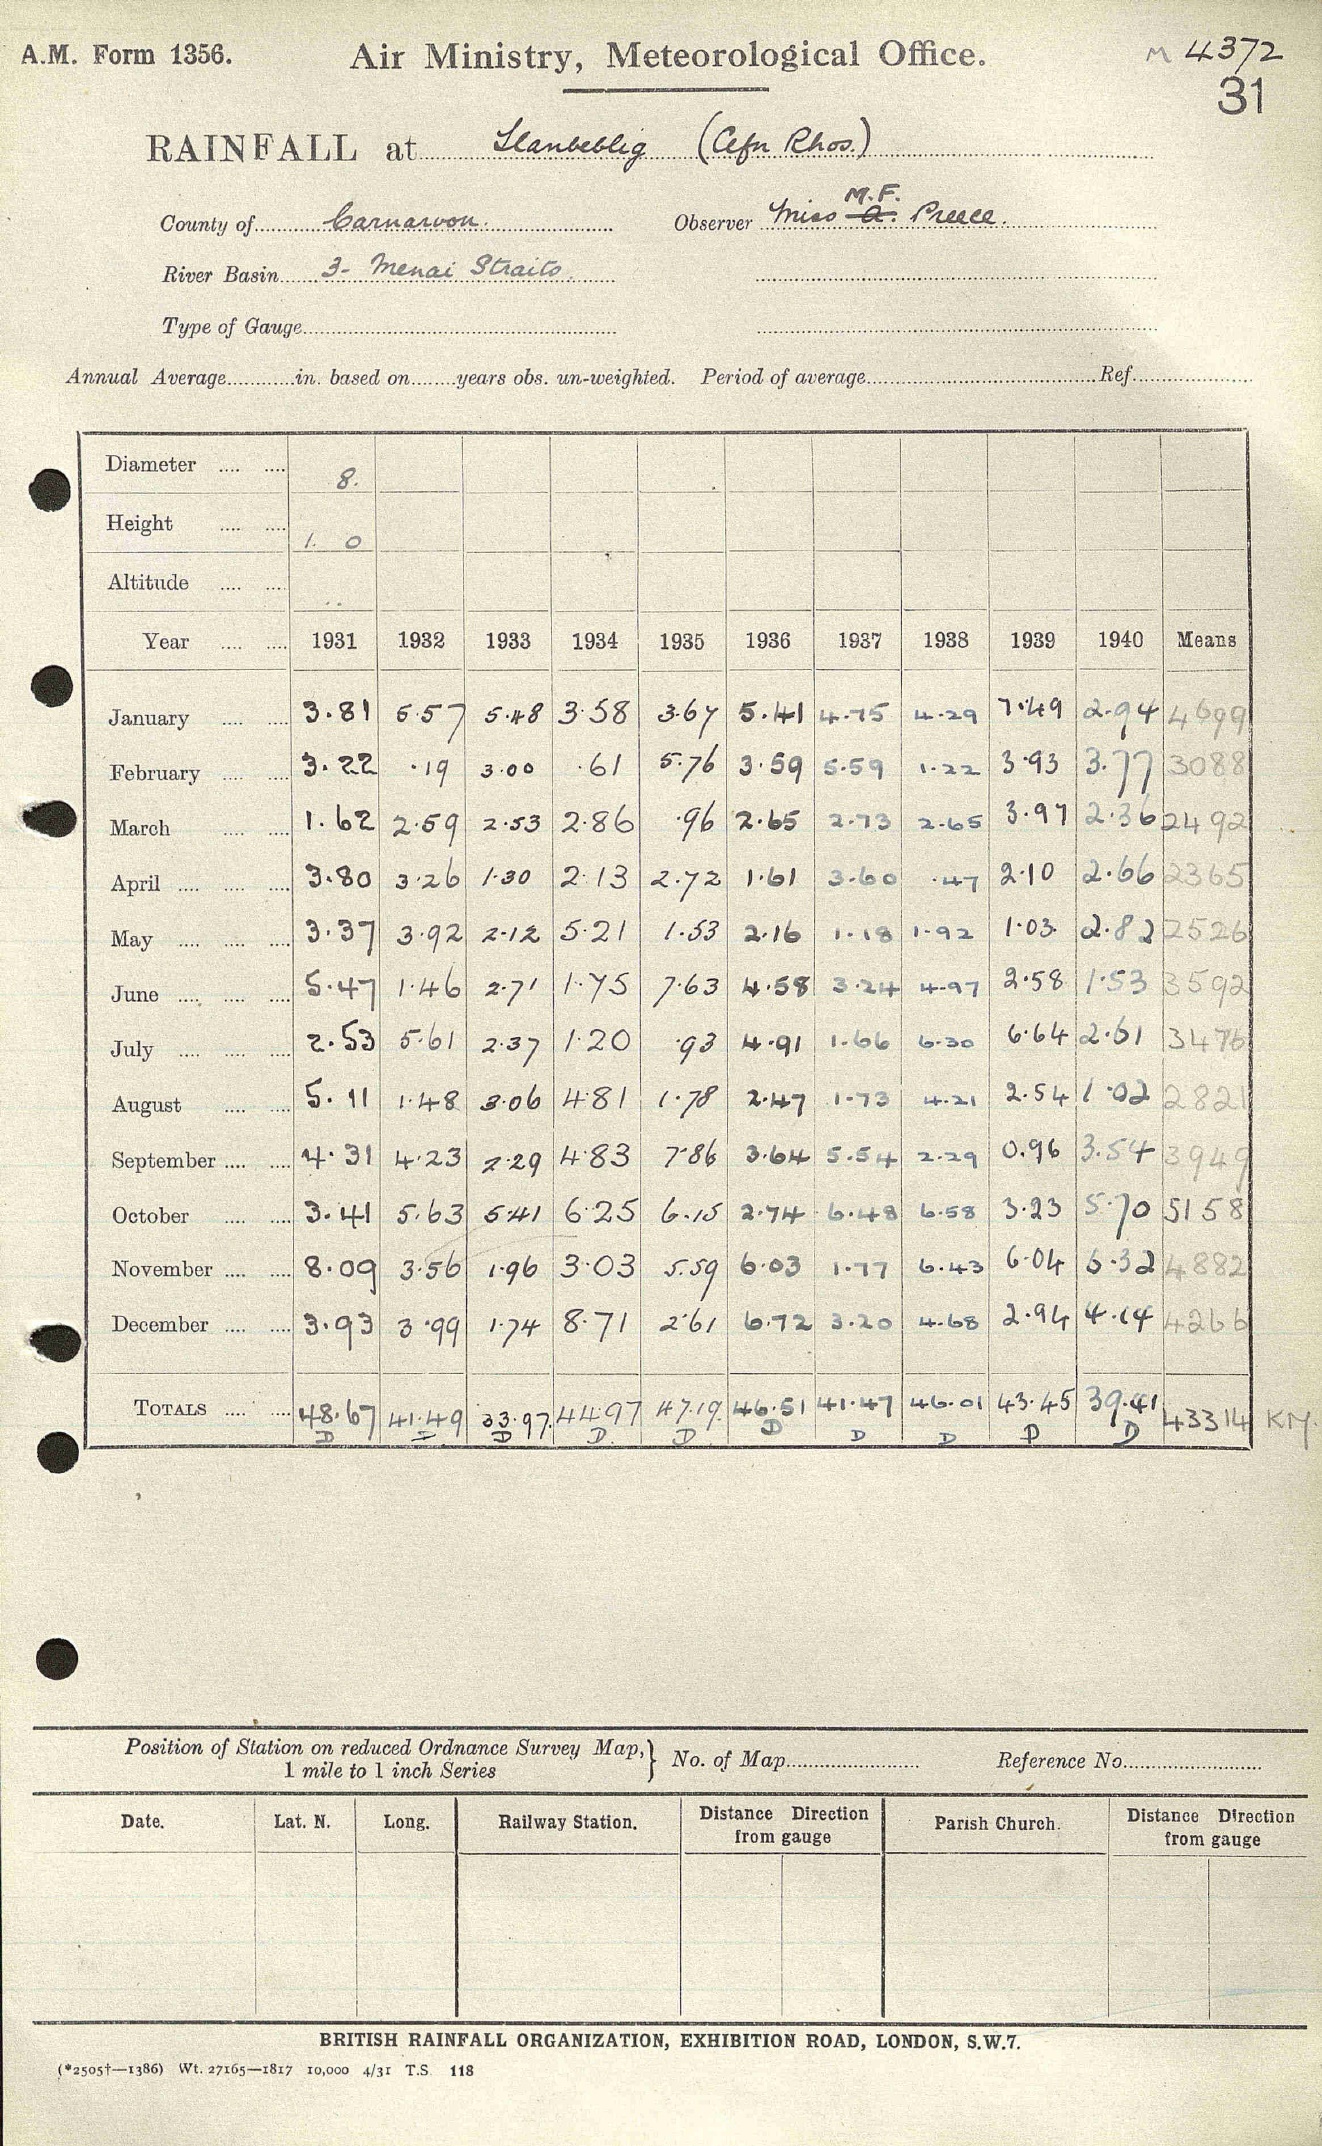 A.M. Form 1356. Air Ministry, Meteorological Office. M 4372
31
RAINFALL at Llanbeblig (Cefn Rhos.)
M.F.
County of Carnarvon. Observer Miss A. Preece.
River Basin 3- Menai Straits.
Type of Gauge
Annual Average in. based on years obs. un-weighted. Period of average Ref.
Diameter .... .... 8.
Height .... .... 1. 0
Altitude .... ....
Year .... .... 1931 1932 1933 1934 1935 1936 1937 1938 1939 1940 Means
January .... .... 3.81 5.57 5.48 3.58 3.67 5.41 4.75 4.29 7.49 2.94 4699
February .... .... 3.22 .19 3.00 .61 5.76 3.59 5.59 1.22 3.93 3.77 3088
March .... .... 1.62 2.59 2.53 2.86 .96 2.65 2.73 2.65 3.97 2.36 2492
April .... .... .... 3.80 3.26 1.30 2.13 2.72 1.61 3.60 .47 2.10 2.66 2365
May .... .... .... 3.37 3.92 2.12 5.21 1.53 2.16 1.18 1.92 1.03 2.82 2526
June .... .... .... 5.47 1.46 2.71 1.75 7.63 4.58 3.24 4.97 2.58 1.53 3592
July .... .... .... 2.53 5.61 2.37 1.20 .93 4.91 1.66 6.30 6.64 2.61 3476
August .... .... 5.11 1.48 3.06 4.81 1.78 2.47 1.73 4.21 2.54 1.02 2821
September .... .... 4.31 4.23 2.29 4.83 7.86 3.64 5.54 2.29 0.96 3.54 3949
October .... .... 3.41 5.63 5.41 6.25 6.15 2.74 6.48 6.58 3.23 5.70 5158
November .... .... 8.09 3.56 1.96 3.03 5.59 6.03 1.77 6.43 6.04 6.32 4882
December .... .... 3.93 3.99 1.74 8.71 2.61 6.72 3.20 4.68 2.94 4.14 4266
TOTALS .... .... 48.67 41.49 33.97. 44.97 47.19. 46.51 41.47 46.01 43.45 39.41 43314 KM.
D D D D D D D D D D
Position of Station on reduced Ordnance Survey Map, } No. of Map Reference No.
1 mile to 1 inch Series
Date. Lat. N. Long. Railway Station. Distance Direction from gauge Parish Church. Distance Direction from gauge
BRITISH RAINFALL ORGANIZATION, EXHIBITION ROAD, LONDON, S.W.7.
(*2505†—1386) Wt. 27165—1817 10,000 4/31 T.S. 118